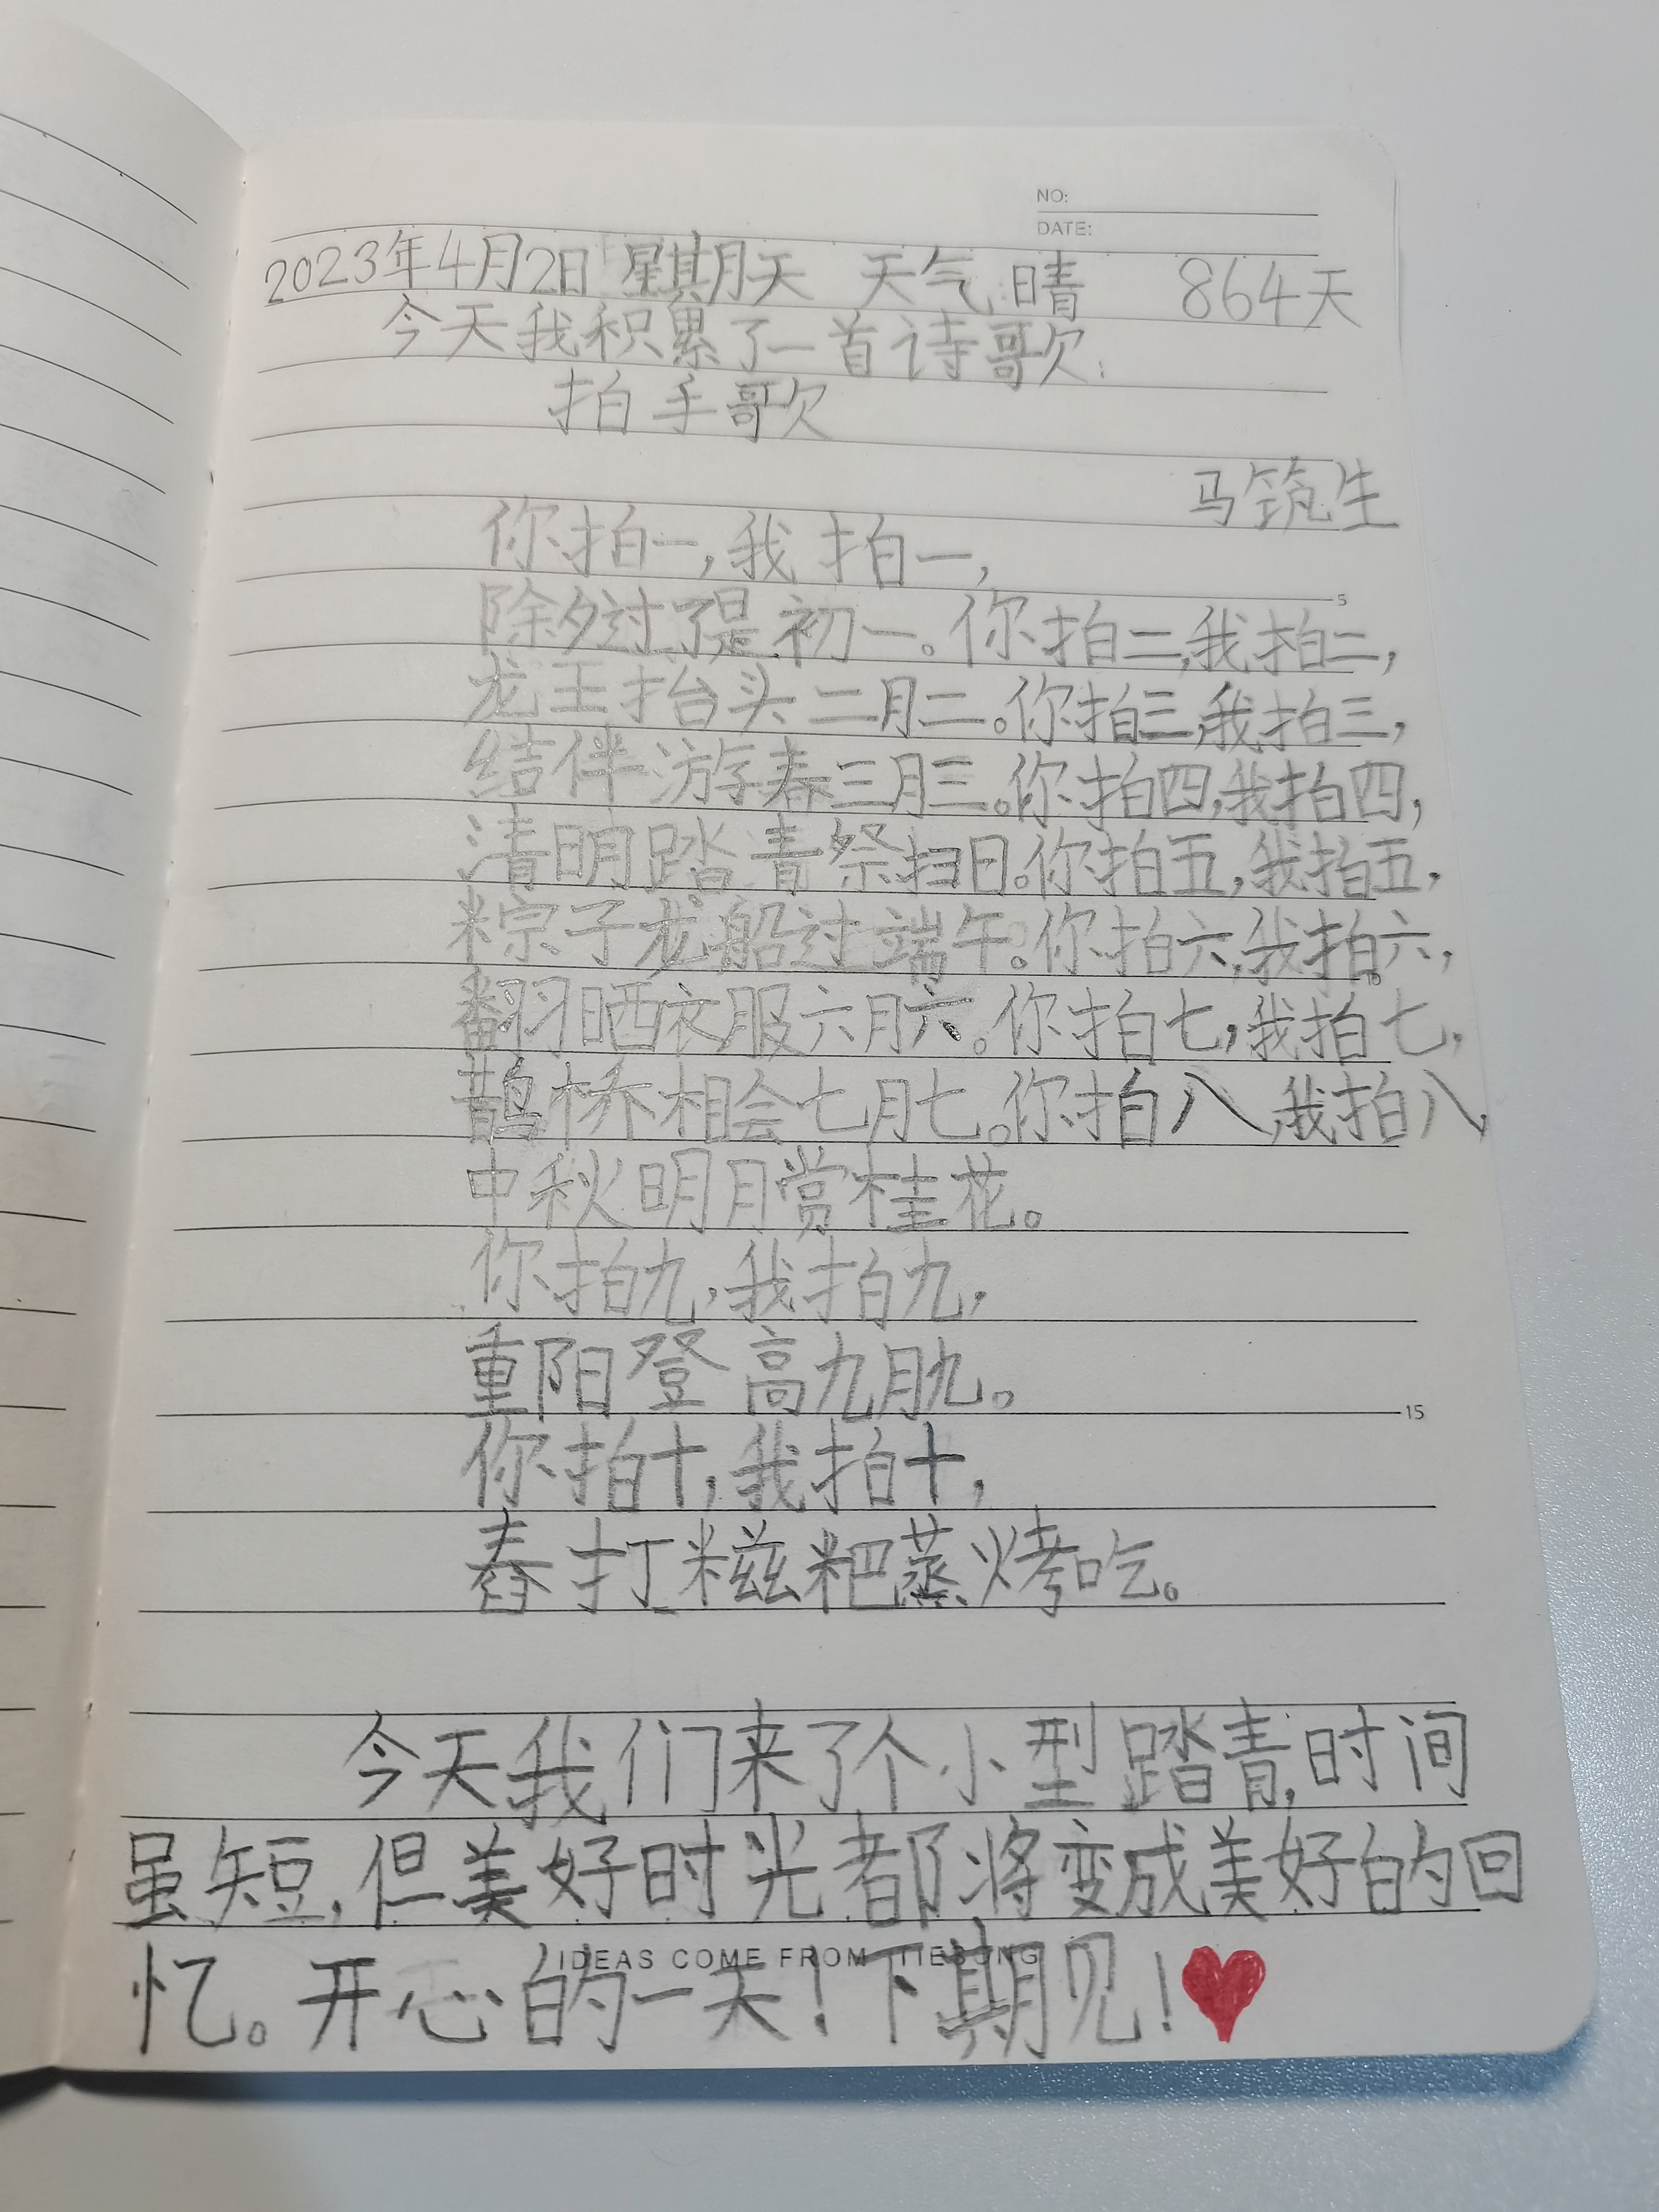 NO:
DATE:
2023年4月2日 星期天 天气晴 864天
今天我积累了一首诗歌:
拍手歌
马筑生
你拍一,我拍一,
除夕过了是初一。你拍二,我拍二,
龙王抬头二月二。你拍三,我拍三,
结伴游春三月三。你拍四,我拍四,
清明踏青祭扫日。你拍五,我拍五,
粽子龙船过端午。你拍六,我拍六,
翻晒衣服六月六。你拍七,我拍七,
鹊桥相会七月七。你拍八,我拍八,
中秋明月赏桂花。
你拍九,我拍九,
重阳登高九月九。
你拍十,我拍十,
舂打糍粑蒸烤吃。
今天我们来了个小型踏青,时间
虽短,但美好时光都将变成美好的回
忆。开心的一天!下期见!
IDEAS COME FROM TIESONG
5
15